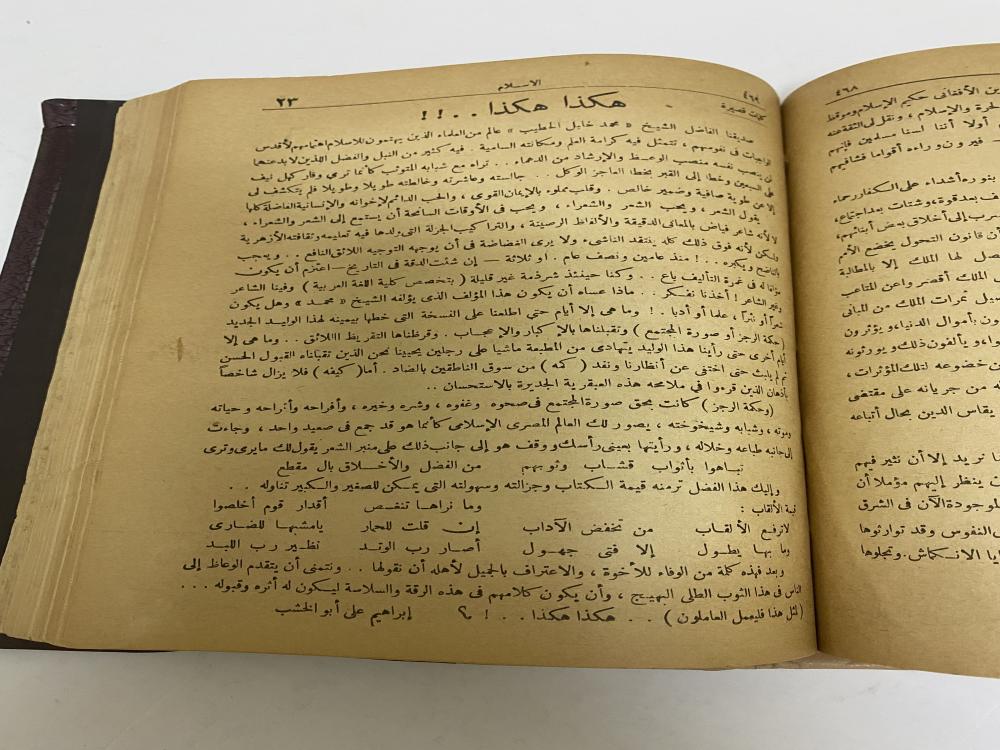 ٤٦٩ الاسلام ٢٣
كلمات قصيرة
هكذا هكذا . . !!
صديقنا الفاضل الشيخ « محمد خليل الخطيب » عالم من العلماء الذين يهتمون للاسلام اهتمامهم لأقدس
الواجبات فى نفوسهم ، تتمثل فيه كرامة العلم ومكانته السامية . فيه كثير من النبل والفضل الذين لا يدعنها
أن ينصب نفسه منصب الوعظ والإرشاد من الدهماء . . تراه مع شبابه المتوثب كأنما ترى وقار كهل نيف
على السبعين وخطا إلى القبر بخطا العاجز الوكل . . جالسته وعاشرته وخالطته طويلا وطويلا فلم يتكشف لى
إلا عن طوية صافية وضمير خالص . وقلب مملوء بالإيمان القوى ، والحب الدائم لإخوانه والإنسانية الفاضلة كلها
يقول الشعر ، ويحب الشعر والشعراء ، ويحب فى الأوقات السانحة أن يستمع إلى الشعر والشعراء ،
لا لأنه شاعر فياض بالمعانى الدقيقة والألفاظ الرصينة ، والتراكيب الجزلة التى ولدها فيه تعليمه وثقافته الأزهرية
ولكن لأنه فوق ذلك كله ينتقد الناشىء ولا يرى الغضاضة فى أن يوجهه التوجيه اللائق النافع . . ويعجب
بالناضج ويكبره . . ! منذ عامين ونصف عام . او ثلاثة — إن شئت الدقة فى التاريخ — اعتزم أن يكون
مؤلفا له فى غمرة التأليف باع . . وكنا حينئذ شرذمة غير قليلة ( بتخصص كلية اللغة العربية ) وفينا الشاعر
وغير الشاعر ! أخذنا نفكر . . ماذا عساه أن يكون هذا المؤلف الذى يؤلفه الشيخ « محمد » وهل يكون
شعراً أو نثراً ، علما أو أدبا . ! وما هى إلا أيام حتى اطلعنا على النسخة التى خطها بيمينه لهذا الوليد الجديد
( حكة الرجز أو صورة المجتمع ) وتقبلناها بالإكبار والإعجاب . وقرظناها التقريظ اللائق . . وما هى إلا
أيام أخرى حتى رأينا هذا الوليد يتهادى من المطبعة ماشيا على رجلين يحيينا نحن الذين تقبلناه القبول الحسن
ثم لم يلبث حتى اختفى عن أنظارنا ونفد ( كمه ) من سوق الناطقين بالضاد . أما ( كيفه ) فلا يزال شاخصاً
بأذهان الذين قرءوا فى ملامحه هذه العبقرية الجديرة بالاستحسان . .
( وحكة الرجز ) كانت بحق صورة المجتمع فى صحوه وغفوه ، وشره وخيره ، وأفراحه وأتراحه وحياته
وموته ، وشبابه وشيخوخته ، يصور لك العالم المصرى الإسلامى كأنما هو قد جمع فى صعيد واحد ، وجاءت
إلى جانبه طباعه وخلاله ، ورأيتها بعينى رأسك ووقف هو إلى جانب ذلك على منبر الشعر يقول لك ما يرى وترى
تباهوا بأثواب قشاب وثوبهم من الفضل والأخلاق بال مقطع
وإليك هذا الفضل ترمنه قيمة الكتاب وجزالته وسهولته التى يمكن للصغير والكبير تناوله . .
قيمة الألقاب : وما نراها تنقص أقدار قوم أخلصوا
لا ترفع الألقاب من تخفض الآداب إن قلت للحمار يا مشبها للضارى
وما بها يطول إلا فتى جهول أصار رب الوتد نظير رب اللبد
وبعد فهذه كلمة من الوفاء للأخوة ، والاعتراف بالجميل لأهله أن نقولها . . ونتمنى أن يتقدم الوعاظ إلى
الناس فى هذا الثوب الطلى البهيج ، وأن يكون كلامهم فى هذه الرقة والسلاسة ليكون له أثره وقبوله . . .
( لمثل هذا فليعمل العاملون ) . . هكذا هكذا . . ! ؟ إبراهيم على أبو الخشب
٤٦٨
ين الأفغانى حكيم الإسلام وموقظ
لحرة والإسلام ، ونقل لى الثقة عنه
أولا أننا لسنا مسلمين فإنهم
غير ون وراءه أقواما فشافيهم
بنوره أشداء على الكفار رحماء
ف بعد قوة ، وشتات بعد اجتماع ،
رب إلى أخلاق بعض أبنائهم ،
أن قانون التحول يخضع الأمم
صل لها الملك إلا بالمطالبة
الملك أقصر واعن المتاعب
صيل ثمرات الملك من المبانى
ون بأموال الدنيا ، ويؤثرون
ا ، ويألفون ذلك ويورثونه
ن خضوعه لتلك المؤثرات ،
له من جريانه على مقتضى
يقاس الدين بحال أتباعه
نا نريد إلا أن نثير فيهم
ت ينظر إليهم مؤملا أن
لوجودة الآن فى الشرق
النفوس وقد توارثوها
يا الانكماش . وتجلوها